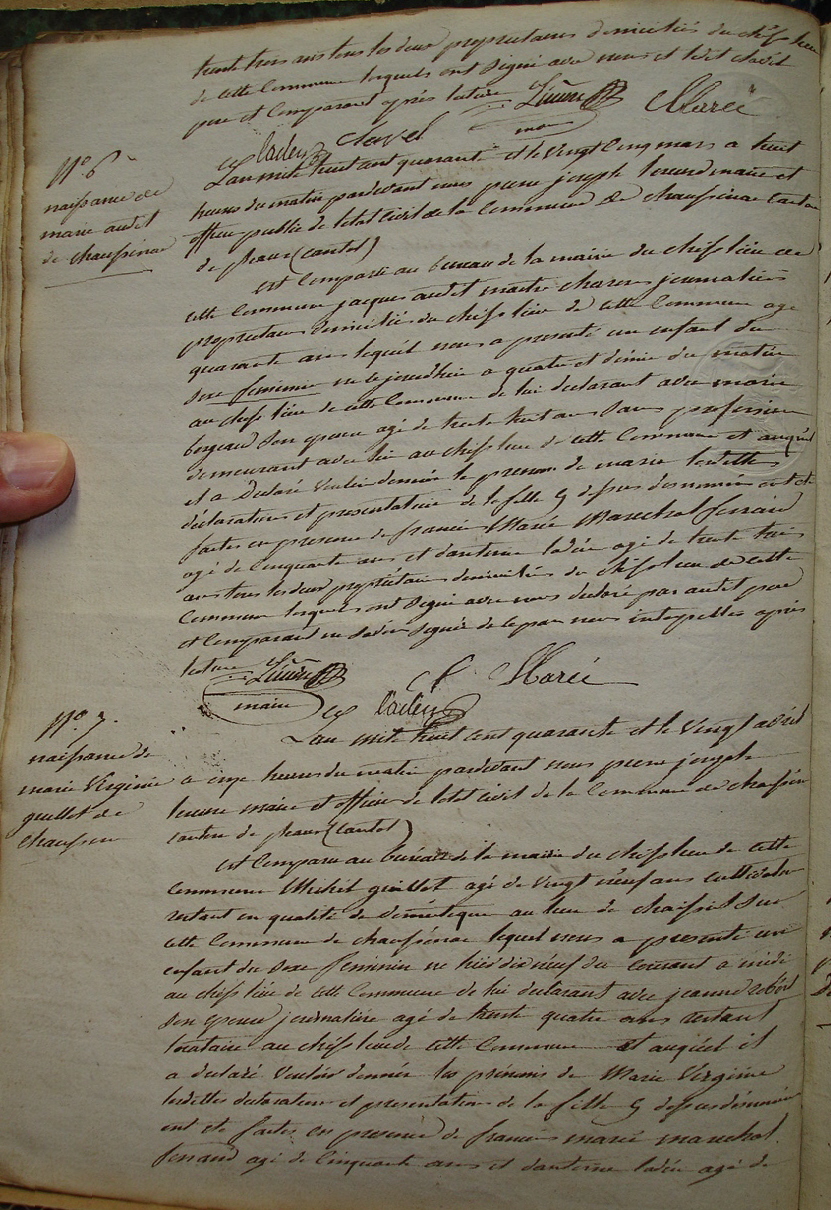 trente trois ans tous les deux propriétaires domiciliés du chef lieu
de cette Commune lesquels ont signé avec nous et ledit clavel
pere et Comparant après lecture
Lieurre Marcé
maire
Ladeu Clavel
N.o 6
naissance de
marie audet
de chaussenac
L'an mile huit cent quarante et le vingt cinq mars a huit
heures du matin pardevant nous pierre joseph Lieurre maire et
officier public de letat civil de la Commune de chaussenac canton
de pleaux (cantal)
est Comparu au bureau de la mairie du chef lieu de
cette Commune jacques audet journalier
proprietaire domicilié du chef lieu de cette Commune age
quarante ans lequel nous a presenté un enfant du
sexe feminin né le a quatre et demie du matin
au chef lieu de cette Commune de lui declarant avec marie
son epouse agé de trente huit ans sans profession
demeurant avec lui au chef lieu de cette Commune et auquel
il a Declaré Vouloir donner le prenom de marie lesdittes
declaration et presentation de la fille cy dessus denommée ont eté
faites en presence de francois Marie Marechal ferrand
agé de cinquante ans et dantoine agé de trente trois
ans tous les deux propriétaires domiciliés du chef lieu de cette
Commune lesquels ont signé avec nous declaré par audet pere
et Comparant ne savoir signer de ce par nous interpellés après
lecture Lieurre Marcé
maire
Ladeu
N.o 7
naissance de
marie Virginie
guillot de
L'an mile huit cent quarante et le vingt avril
a onze heures du matin pardevant nous pierre joseph
Lieurre maire et officier de letat civil de la Commune de
canton de pleaux (cantal)
est Comparu au bureau de la mairie du chef lieu de cette
Commune Michel guillot agé de vingt neuf ans cultivateur
restant en qualité de domestique au lieu de sur
cette Commune de chaussenac lequel nous a presenté un
enfant du sexe feminin né hier dix neuf du courant a midi
au chef lieu de cette Commune de lui declarant avec jeanne
son epouse journaliere agé de trente quatre ans restant
locataire au chef lieu de cette Commune et auquel il
a declaré Vouloir donner les prenoms de Marie Virginie
lesdittes declaration et presentation de la fille cy dessus denommée
ont eté faites en presence de francois marie marechal
ferrand agé de Cinquante ans et dantoine agé de